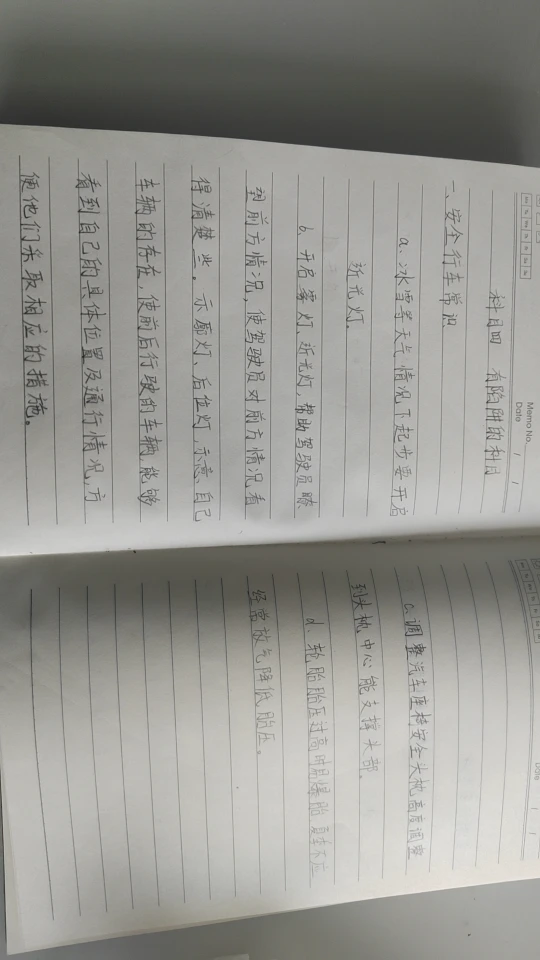 Memo No.
Date / /
科目四 有陷阱的科目
一、安全行车常识
a.冰雪等天气情况下起步要开启
近光灯.
b.开启雾灯、近光灯,帮助驾驶员瞭
望前方情况,使驾驶员对前方情况看
得清楚些。示廓灯、后位灯,示意自己
车辆的存在,使前后行驶的车辆,能够
看到自己的具体位置及通行情况,方
便他们采取相应的措施。
Date / /
c.调整汽车座椅安全头枕高度调整
到头枕中心能支撑头部.
d.轮胎胎压过高时易爆胎 夏季不应
经常放气降低胎压。